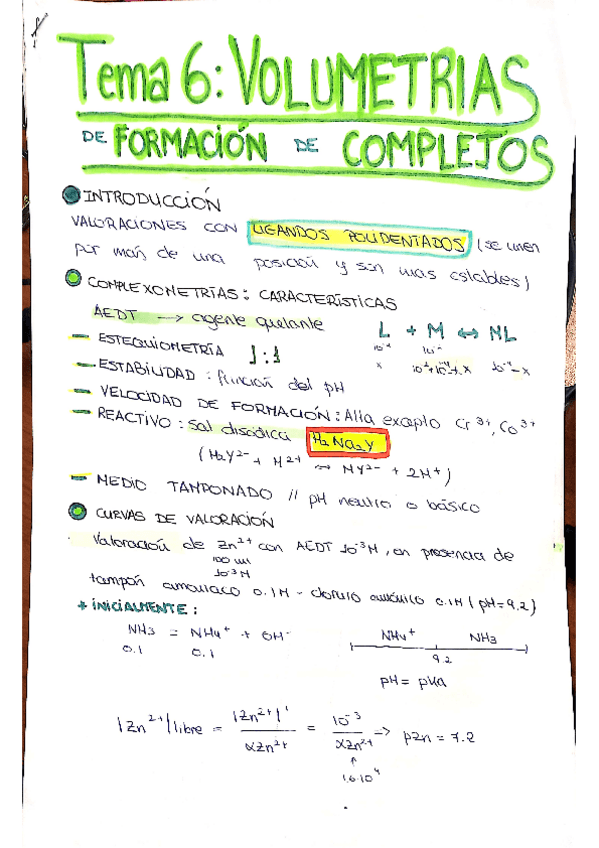 Tema 6: VOLUMETRIAS
DE FORMACIÓN DE COMPLEJOS
INTRODUCCIÓN
VALORACIONES CON LIGANDOS POLIDENTADOS (se unen
por más de una posición y son mas estables)
COMPLEXOMETRÍAS: CARACTERÍSTICAS
AEDT → agente quelante
L + M ↔ ML
- ESTEQUIOMETRÍA 1:1
- ESTABILIDAD: función del pH
- VELOCIDAD DE FORMACIÓN: Alta excepto Cr³⁺, Co³⁺
- REACTIVO: Sal disódica H₂Na₂Y
(H₂Y²⁻ + M²⁺ ↔ MY²⁻ + 2H⁺)
- MEDIO TAMPONADO // pH neutro o básico
CURVAS DE VALORACIÓN
Valoración de Zn²⁺ con AEDT 10⁻³M, en presencia de
100 ml
10⁻³M
tampón amoniaco 0.1M - cloruro amónico 0.1M (pH=9.2)
+ INICIALMENTE:
NH3 = NH4⁺ + OH⁻
0.1 0.1
NH4⁺ NH3
9.2
pH = pKa
|Zn²⁺|libre = |Zn²⁺|' / αZn²⁺ = 10⁻³ / αZn²⁺ => pZn = 7.2
↑
1.6·10⁴